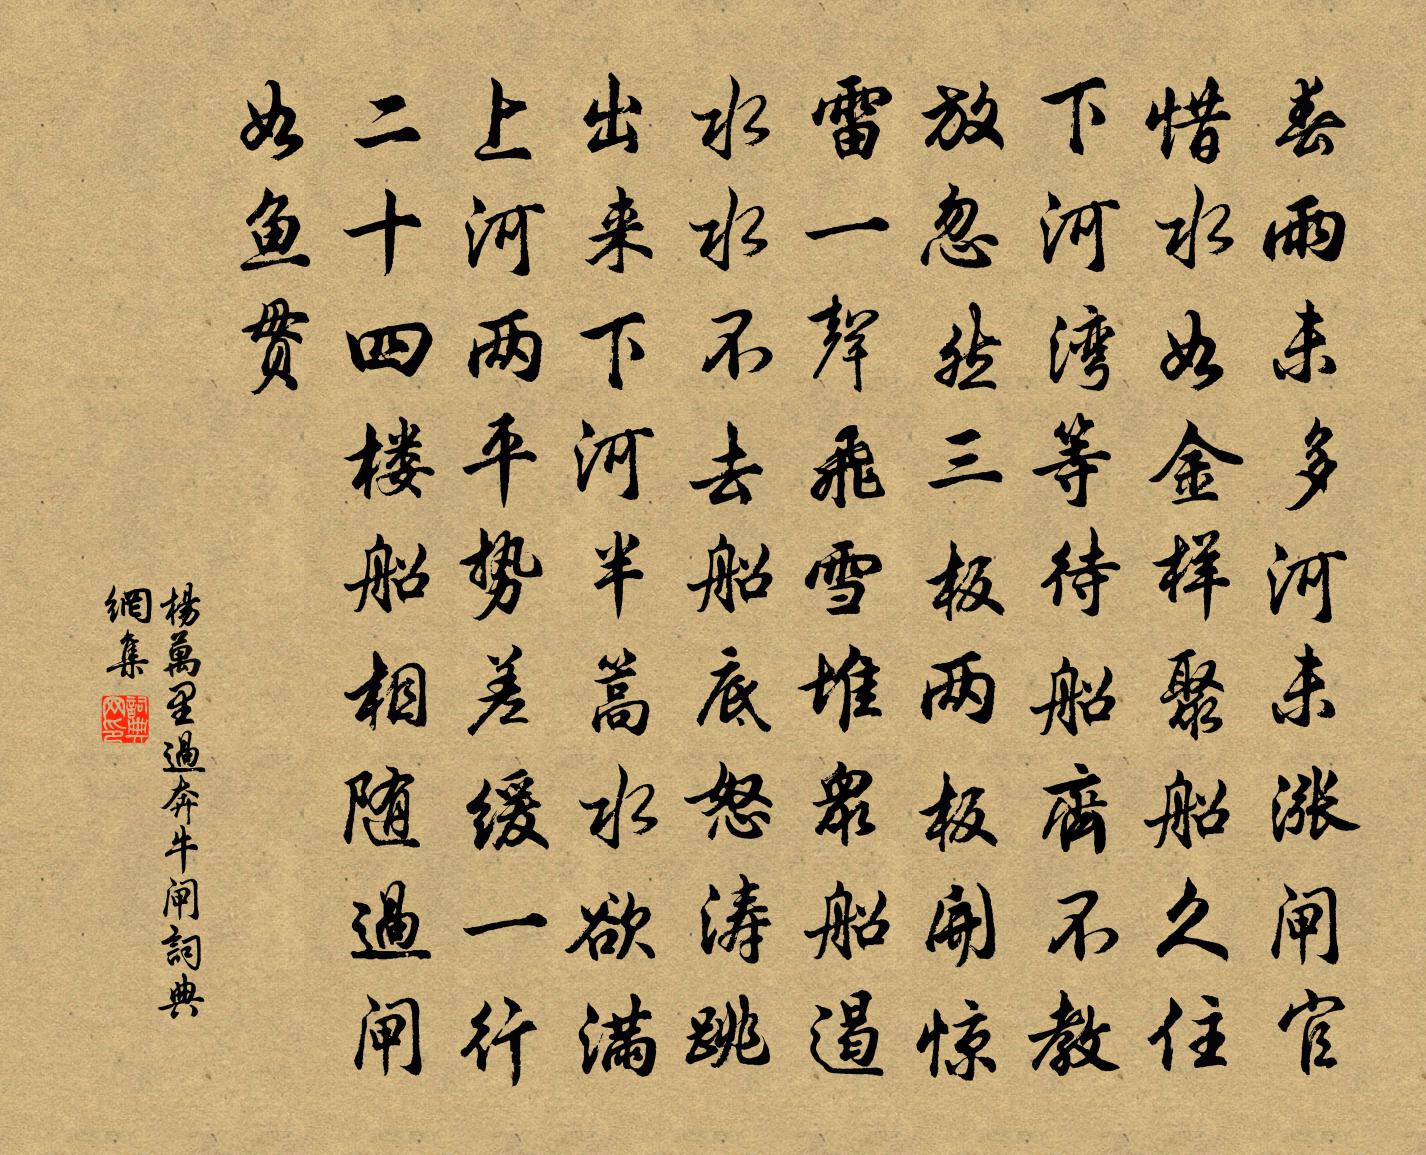 春雨未多河未涨闸官
惜水如金样聚船久住
下河湾等待船齊不教
放忽然三板两板開惊
雷一聲飛雪堆眾船遏
水水不去船底怒涛跳
出来下河半篙水欲满
上河两平势差缓一行
二十四楼船相随過闸
如鱼贯
楊萬里過奔牛闸詞典
網集
詞典
网印